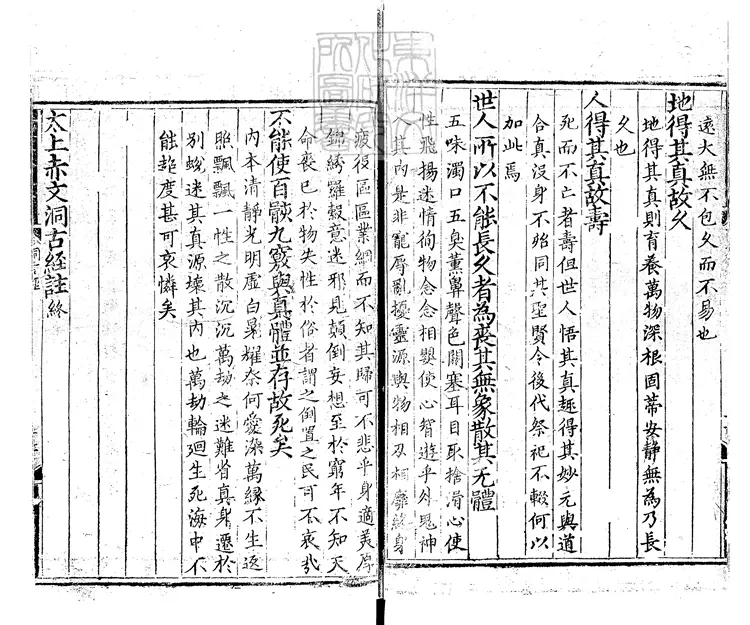 遠大無不包久而不易也
地得其真故久
地得其真則育養萬物深根固蒂安靜無為乃長
久也
人得其真故壽
死而不亡者壽但世人悟其真趣得其妙元與道
合真沒身不殆同其聖賢令後代祭祀不輟何以
加此焉
世人所以不能長久者為喪其無象散其无體
五味濁口五臭薰鼻聲色關塞耳目取捨滑心使
性飛揚迷情徇物念念相嬰使心智遊乎外鬼神
入其內是非寵辱亂擾靈源與物相刃相靡終身
疲役區區業綱而不知其歸可不悲乎身適美厚
錦綉羅縠意迷邪見顛倒妄想至於窮年不知天
命喪已於物失性於俗者謂之倒置之民可不哀哉
不能使百骸九竅與真體並存故死矣
內本清靜光明虛白晃耀奈何愛染萬緣不生返
照飄飄一性之散沉沉萬劫之迷難省真身遷於
別蛻迷其真源壞其內也萬劫輪廻生死海中不
能超度甚可哀憐矣
太上赤文洞古經註終
洞古經